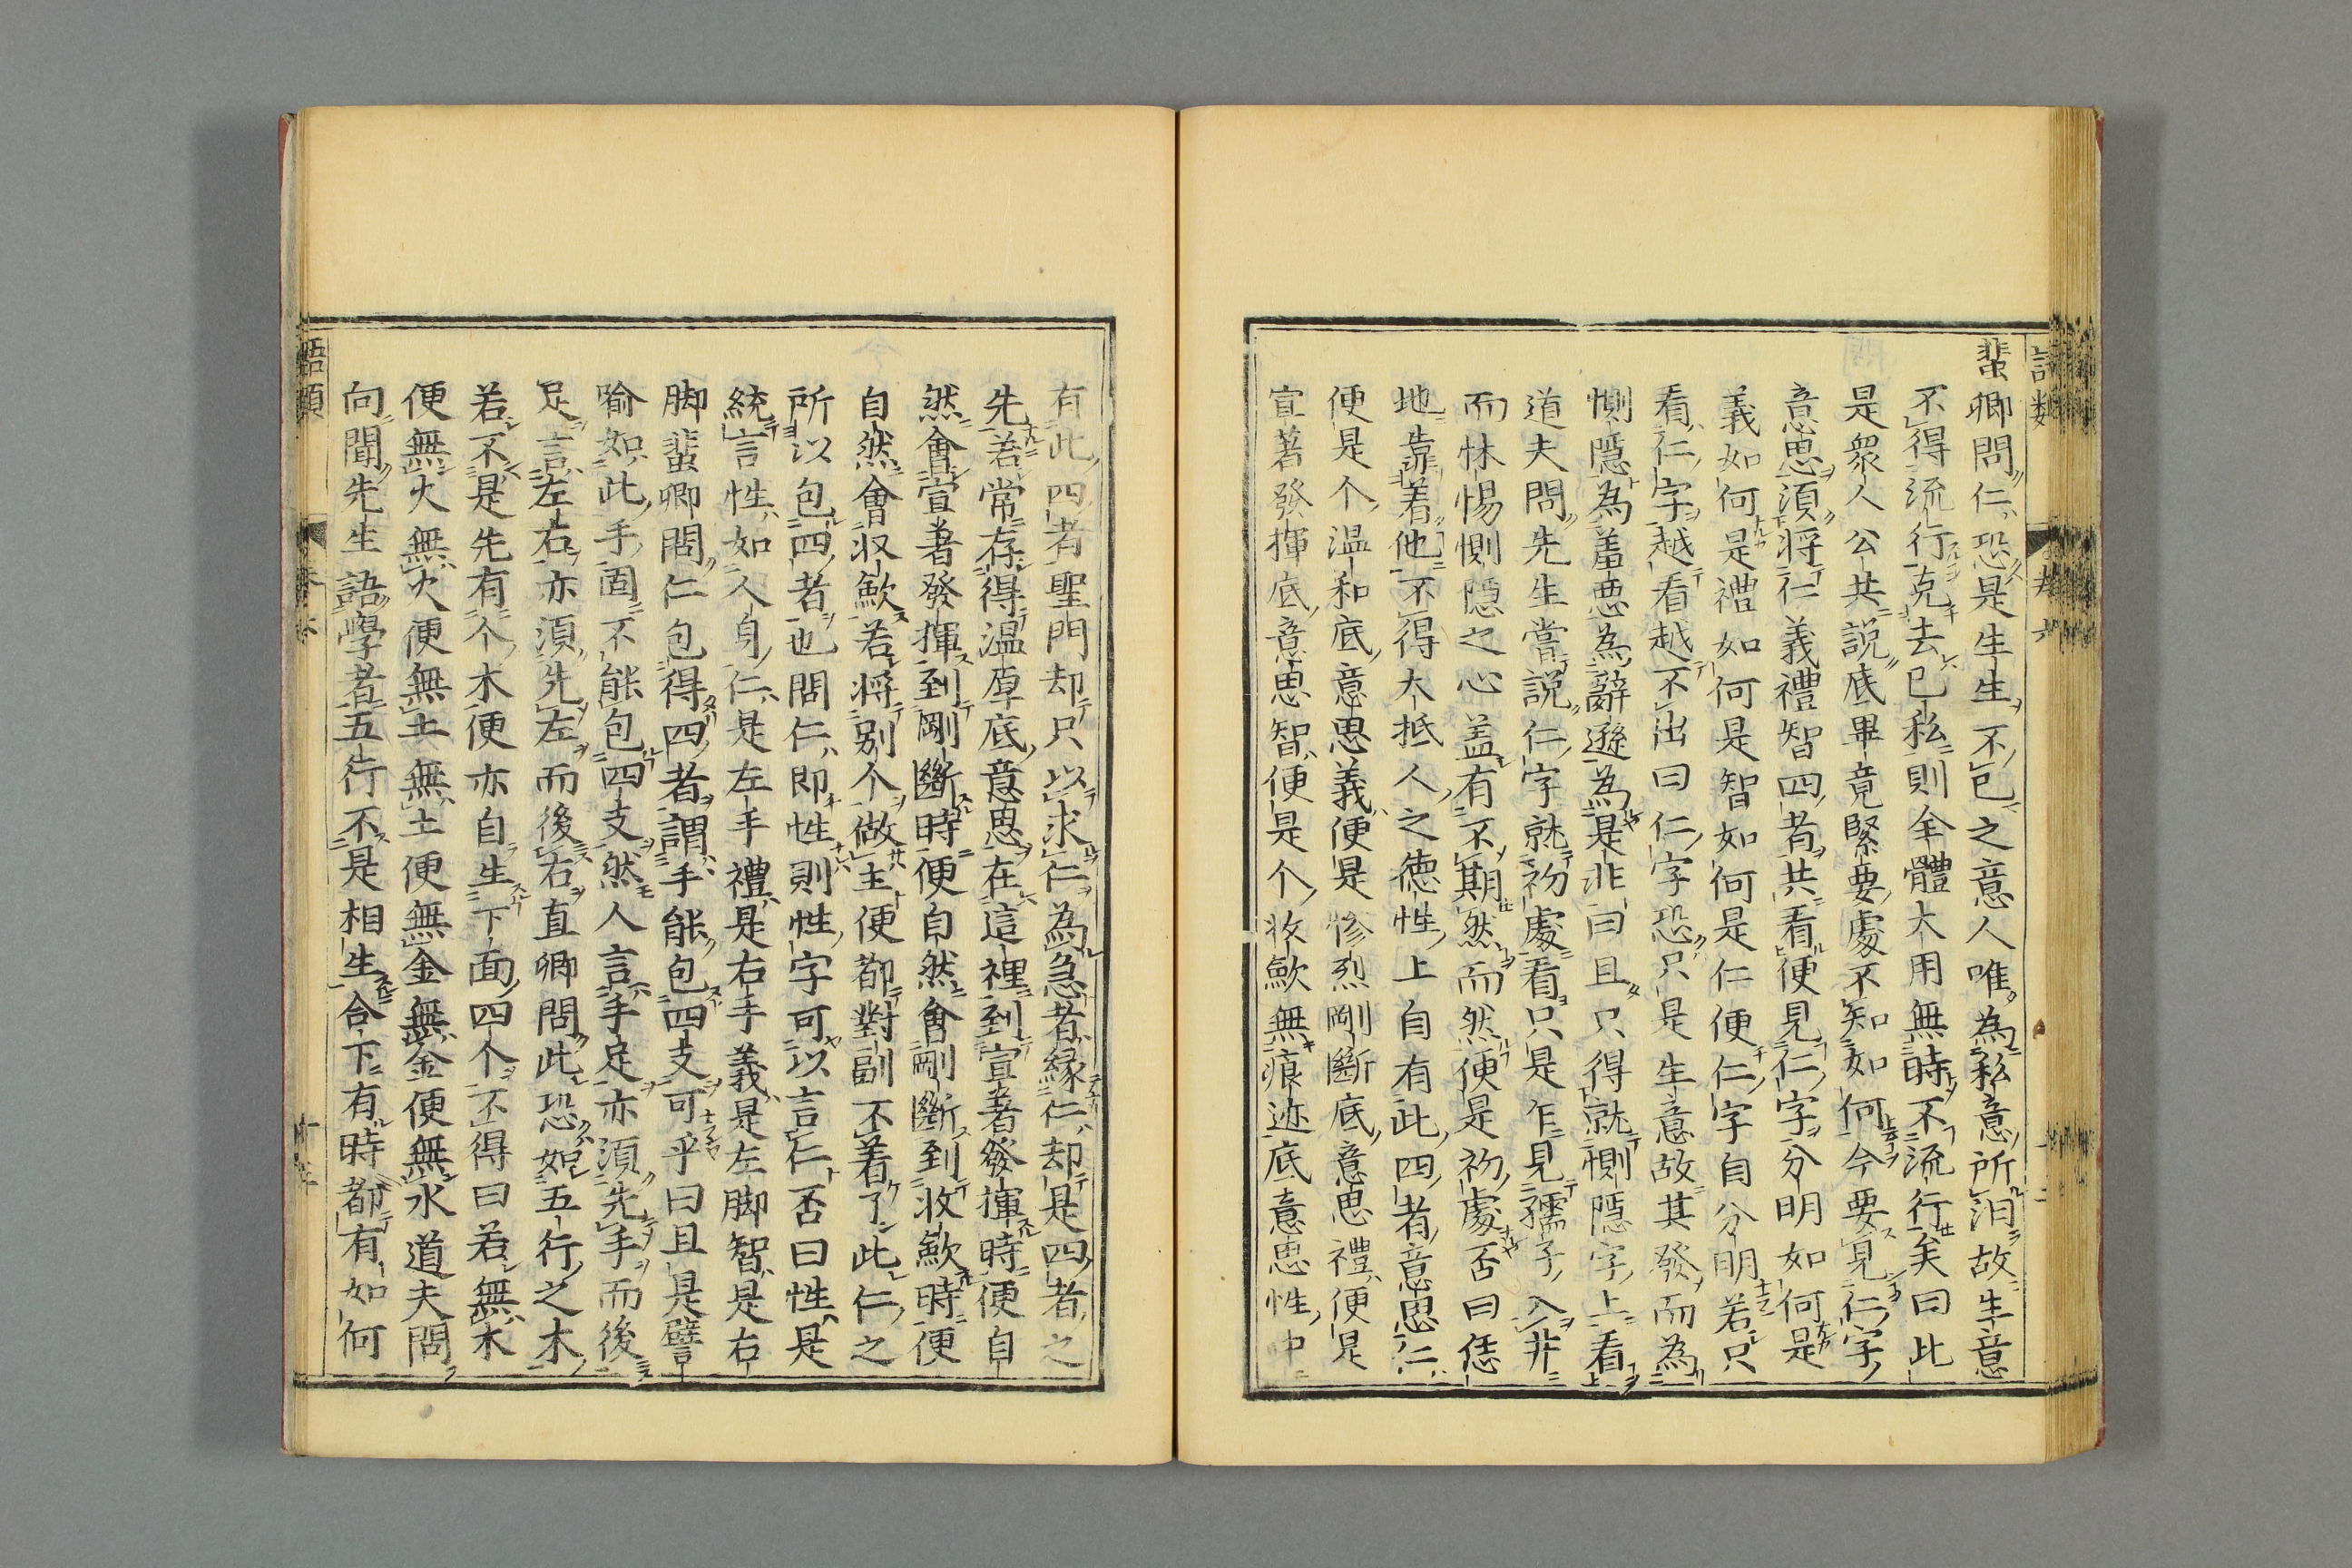 蜚卿問仁恐是生生不已之意人唯為私意所汩故生意
不得流行克去已私則全體大用無時不流行矣曰此
是衆人公共説底畢竟緊要處不知如何今要見仁字
意思須将仁義禮智四者共看便見仁字分明如何是
義如何是禮如何是智如何是仁便仁字自分明若只
看仁字越看越不出曰仁字恐只是生意故其發而為
惻隱為羞惡為辭遜為是非曰且只得就惻隱字上看
道夫問先生嘗説仁字就初處看只是乍見孺子入井
而怵惕惻隱之心盖有不期然而然便是初處否曰恁
地靠着他不得大抵人之德性上自有此四者意思仁
便是个温和底意思義便是慘烈剛斷底意思禮便是
宣著發揮底意思智便是个收歛無痕迹底意思性中
有此四者聖門却只以求仁為急者縁仁却是四者之
先若常存得温厚底意思在這裡到宣著發揮時便自
然會宣著發揮到剛斷時便自然會剛斷到收歛時便
自然會收歛若将别个做主便都對副不着了此仁之
所以包四者也問仁即性則性字可以言仁否曰性是
統言性如人身仁是左手禮是右手義是左脚智是右
脚蜚卿問仁包得四者謂手能包四支可乎曰且是譬
喻如此手固不能包四支然人言手足亦須先手而後
足言左右亦須先左而後右直卿問此恐如五行之木
若不是先有个木便亦自生下面四个不得曰若無木
便無火無火便無土無土便無金無金便無水道夫問
向聞先生語學者五行不是相生合下有時都有如何
語類